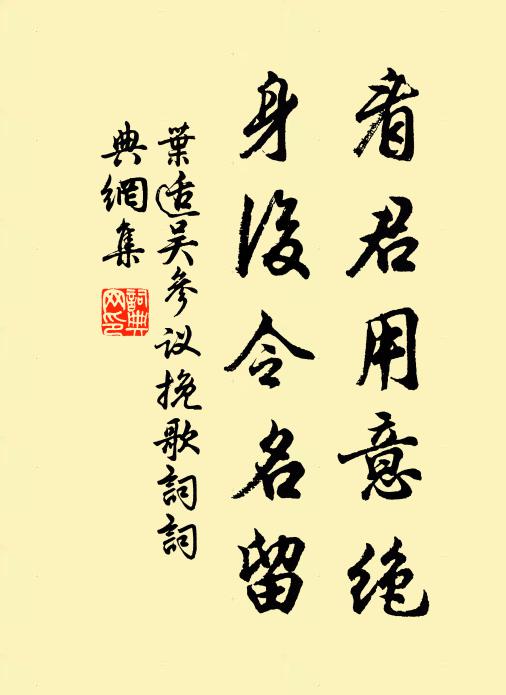 看君用意绝
身後令名留
葉适吴参议挽歌詞詞
典網集
詞典网印